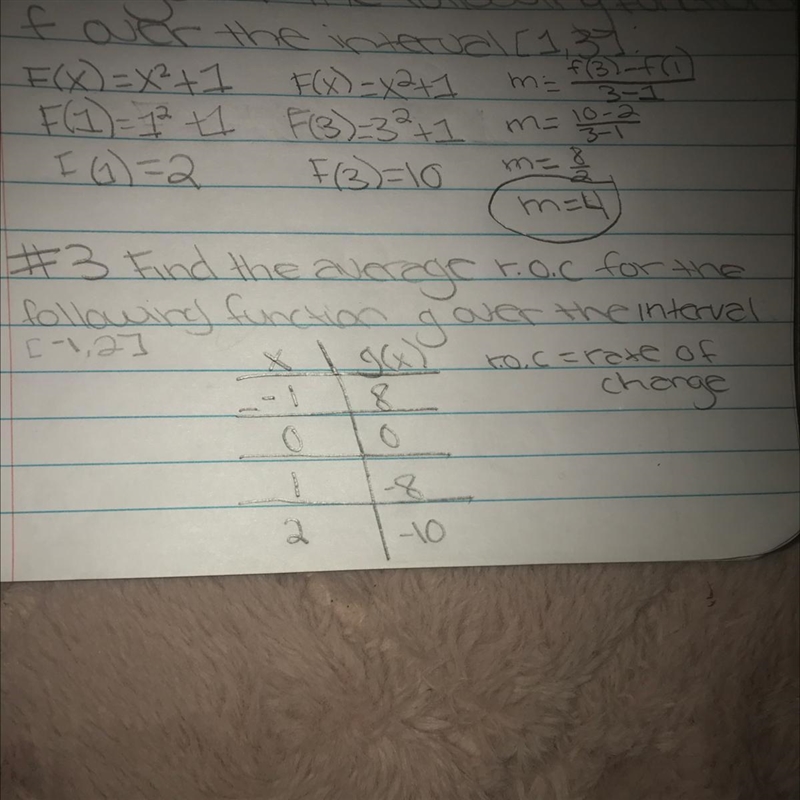 the following function
f over the interval [1,3].
F(x)=x²+1 F(x)=x²+1 m=f(3)-f(1)/3-1
F(1)=1²+1 F(3)=3²+1 m=10-2/3-1
F(1)=2 F(3)=10 m=8/2
m=4
#3 Find the average r.o.c for the
following function g over the interval
[-1,2]
x g(x) r.o.c = rate of
change
-1 8
0 0
1 -8
2 -10